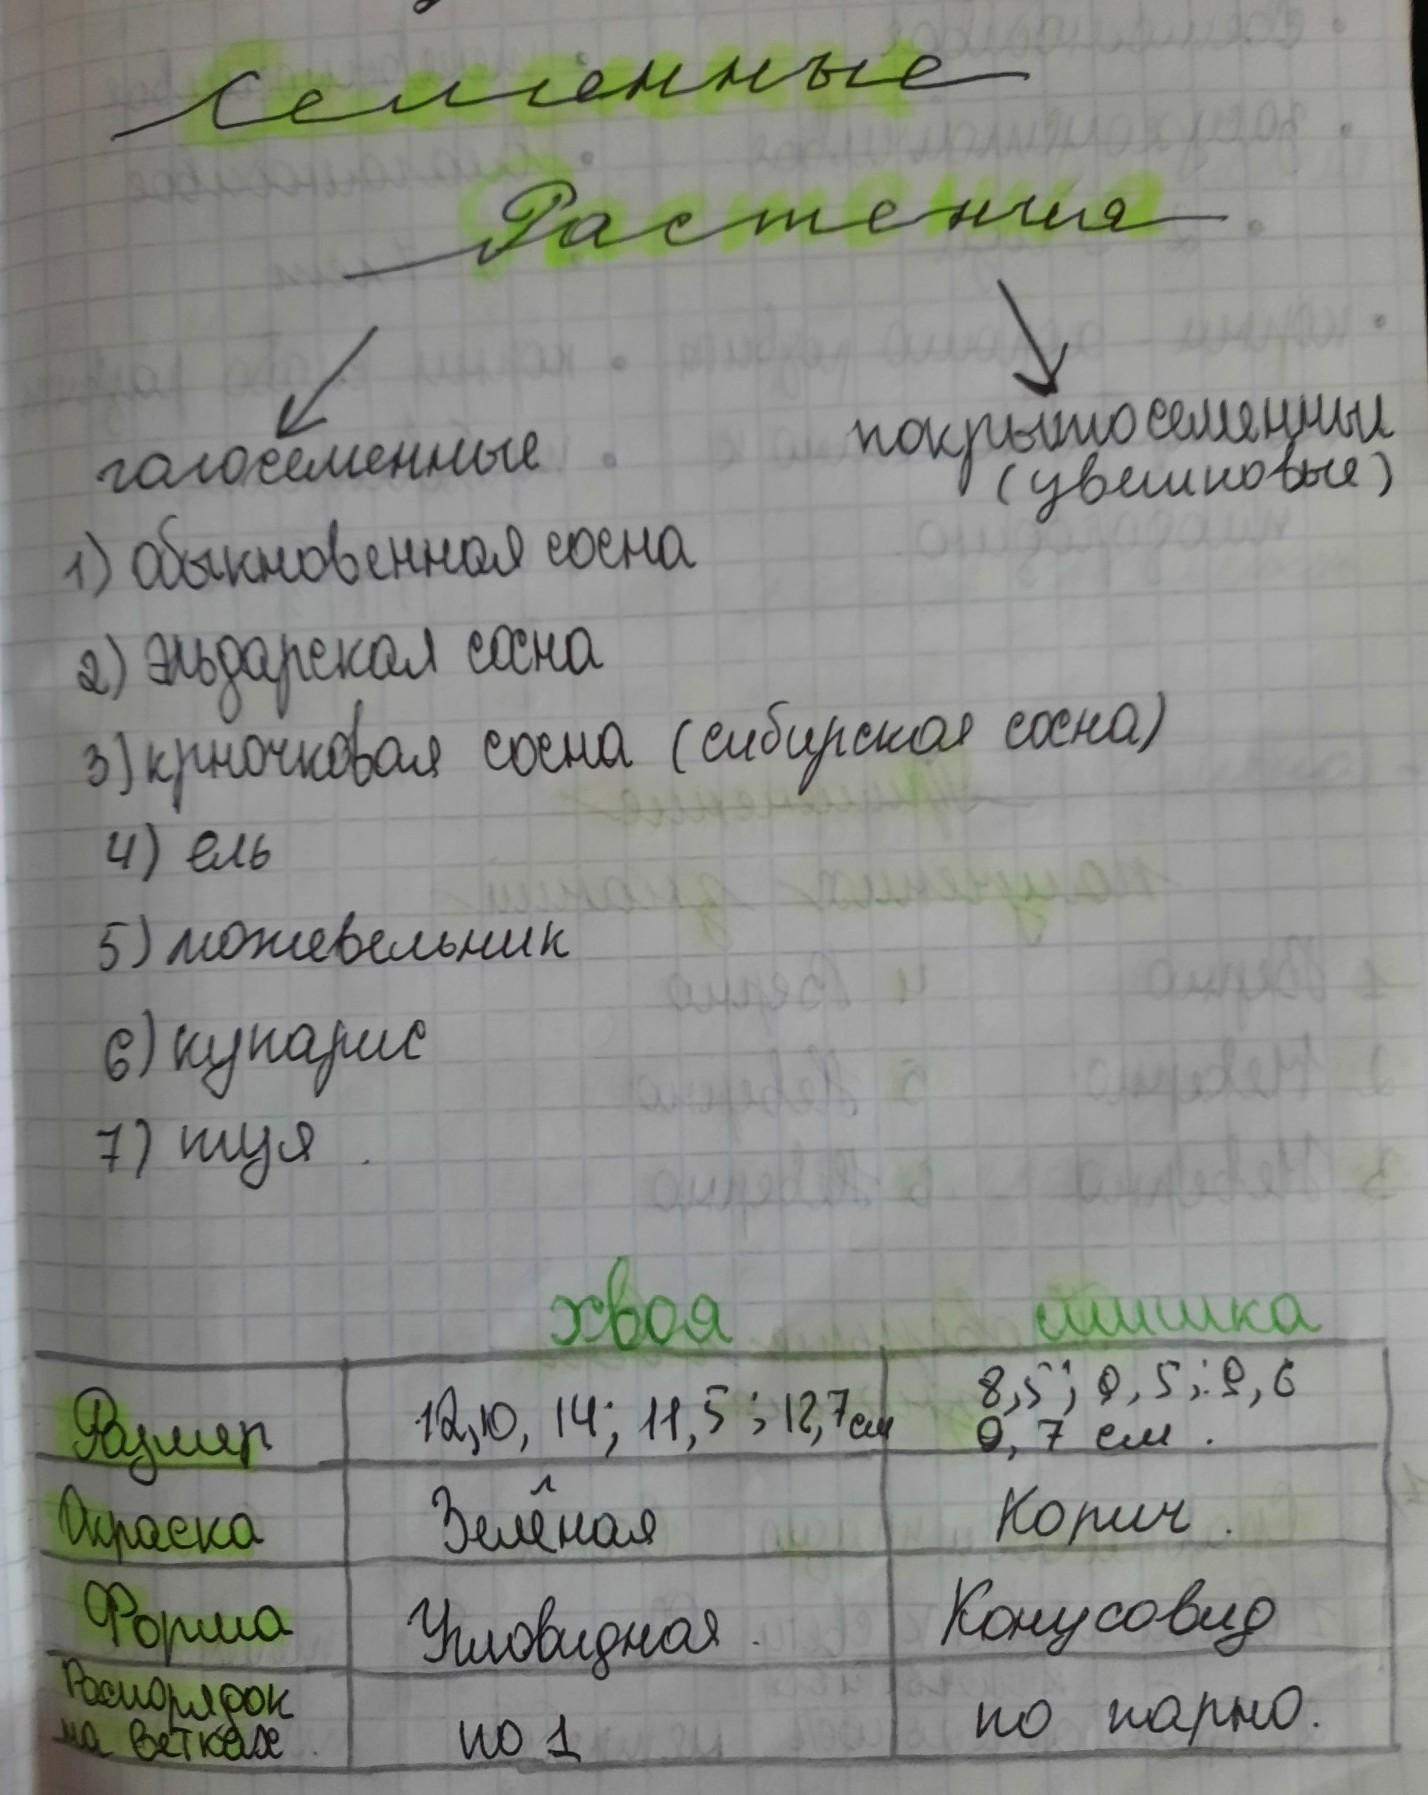 Семенные
Растения
голосеменные
покрытосеменные
(цветковые)
1) обыкновенная сосна
2) эльдарская сосна
3) крючковая сосна (сибирская сосна)
4) ель
5) можевельник
6) купарис
7) туя
хвоя шишка
Размер 12,10, 14; 11,5; 12,7см 8,5; 9,5; 9,6
9,7 см.
Окраска Зелёная Корич.
Форма Угловидная. Конусовид
Распорядок
на ветках по 1 по парно.